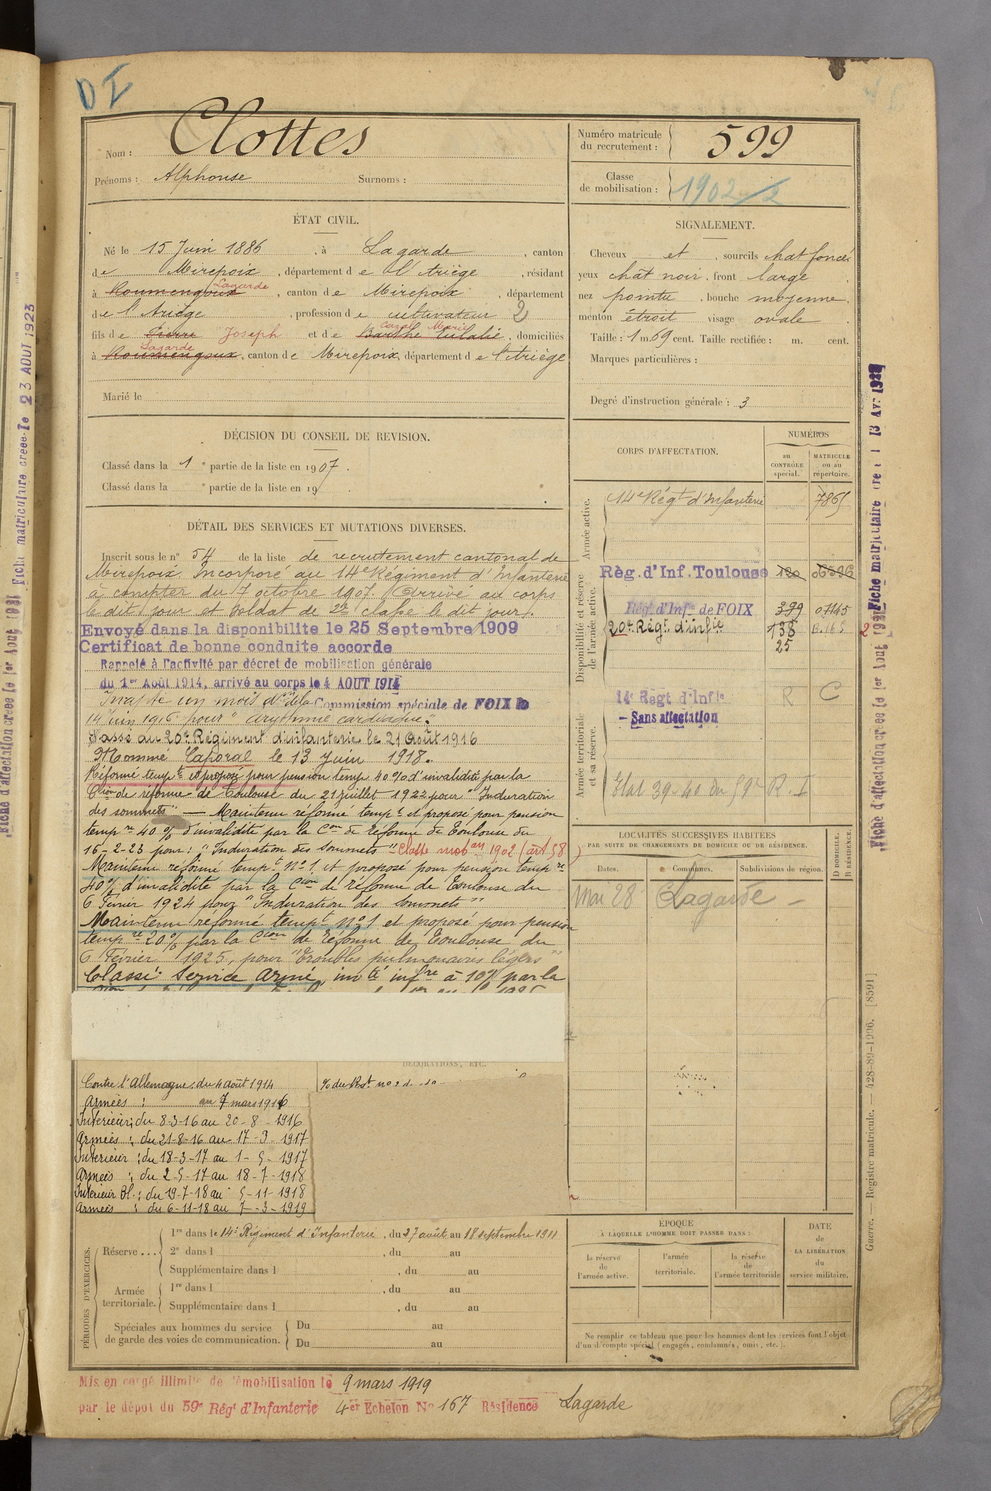 DI
Nom : Clottes
Prénoms : Alphonse Surnoms :
Numéro matricule du recrutement : 599
Classe de mobilisation : 1902
ÉTAT CIVIL.
Né le 15 Juin 1886, à Lagarde, canton
de Mirepoix, département de l'Ariège, résidant
à Roumengoux Lagarde, canton de Mirepoix, département
de l'Ariège, profession de cultivateur 2
fils de Joseph et de Marie, domiciliés
à Roumengoux Lagarde, canton de Mirepoix, département de l'Ariège
Marié le
SIGNALEMENT.
Cheveux et, sourcils chat foncé
yeux chat noir, front large
nez pointu, bouche moyenne
menton étroit visage ovale
Taille : 1 m. 69 cent. Taille rectifiée : m. cent.
Marques particulières :
Degré d'instruction générale : 3
DÉCISION DU CONSEIL DE REVISION.
Classé dans la 1e partie de la liste en 1907.
Classé dans la e partie de la liste en 19
DÉTAIL DES SERVICES ET MUTATIONS DIVERSES.
Inscrit sous le n° 54 de la liste de recrutement cantonal de
Mirepoix. Incorporé au 14e Régiment d'Infanterie
à compter du 7 octobre 1907. Arrivé au corps
le dit jour et soldat de 2e classe le dit jour.
Envoyé dans la disponibilite le 25 Septembre 1909
Certificat de bonne conduite accorde
Rappelé à l'activité par décret de mobilisation générale
du 1er Août 1914, arrivé au corps le 4 AOUT 1914
Inapte un mois don de la Commission spéciale de FOIX
14 juin 1916 pour "arythmie cardiaque".
Passé au 20e Régiment d'infanterie le 21 Août 1916
Nommé Caporal le 13 juin 1918.
Réformé tempt et proposé pour pension temp 40% d'invalidité par la
Cion de réforme de Toulouse du 21 juillet 1922 pour "Induration
des sommets" — Maintenu réformé tempt et proposé pour pension
tempre 40% d'invalidité par la Con de réforme de Toulouse du
16-2-23 pour : "Induration des sommets" Classe mobon 1902 (art 58)
Maintenu réformé tempt n°1 et proposé pour pension tempre
40% d'invalidité par la Cion de réforme de Toulouse du
6 Février 1924 pour "Induration des sommets"
Maintenu réformé tempt n°1 et proposé pour pension
tempre 20% par la Cion de réforme de Toulouse du
6 Février 1925, pour "Troubles pulmonaires légers"
Classé Service Armé, invté infre à 10% par la
DÉCORATIONS, ETC.
Contre l'Allemagne : du 4 août 1914
Armées : au 7 mars 1916
Intérieur : du 8-3-16 au 20-8-1916
Armées : du 21-8-16 au 17-3-1917
Intérieur : du 18-3-17 au 1-5-1917
Armées : du 2-5-17 au 18-7-1918
Intérieur Bl. : du 19-7-18 au 5-11-1918
Armées : du 6-11-18 au 7-3-1919
CORPS D'AFFECTATION.
NUMÉROS
au CONTRÔLE spécial.
MATRICULE ou au répertoire.
Armée active.
14e Régt d'Infanterie 7865
Disponibilité et réserve de l'armée active.
Règ. d'Inf. Toulouse
Rég. d'Inf. de FOIX 399
20e Régt d'infie 138
25
Armée territoriale et sa réserve.
14e Regt d'Infie R C
- Sans affectation
Etat 39-40 du 59e R.I
LOCALITÉS SUCCESSIVES HABITÉES
PAR SUITE DE CHANGEMENTS DE DOMICILE OU DE RÉSIDENCE.
Dates. Communes. Subdivisions de région. D DOMICILE. R RÉSIDENCE.
Mai 28 Lagarde -
PÉRIODES D'EXERCICES.
Réserve... 1re dans le 14e Régiment d'Infanterie, du 27 août au 18 septembre 1911
2e dans l, du au
Supplémentaire dans l, du au
Armée territoriale. 1re dans l, du au
Supplémentaire dans l, du au
Spéciales aux hommes du service de garde des voies de communication. Du au
Du au
ÉPOQUE
À LAQUELLE L'HOMME DOIT PASSER DANS :
la réserve de l'armée active.
l'armée territoriale.
la réserve de l'armée territoriale
DATE de LA LIBÉRATION du service militaire.
Ne remplir ce tableau que pour les hommes dont les services font l'objet
d'un décompte spécial (engagés, condamnés, omis, etc.).
Mis en congé illimité de démobilisation le 9 mars 1919
par le dépot du 59e Régt d'Infanterie 4er Echelon N° 167 Résidence Lagarde
Guerre. — Registre matricule. — 428-89-1906. [8591]
Fiche matriculaire créée le 23 AOUT 1923
Fiche d'affectation créée le 1er Août 1931